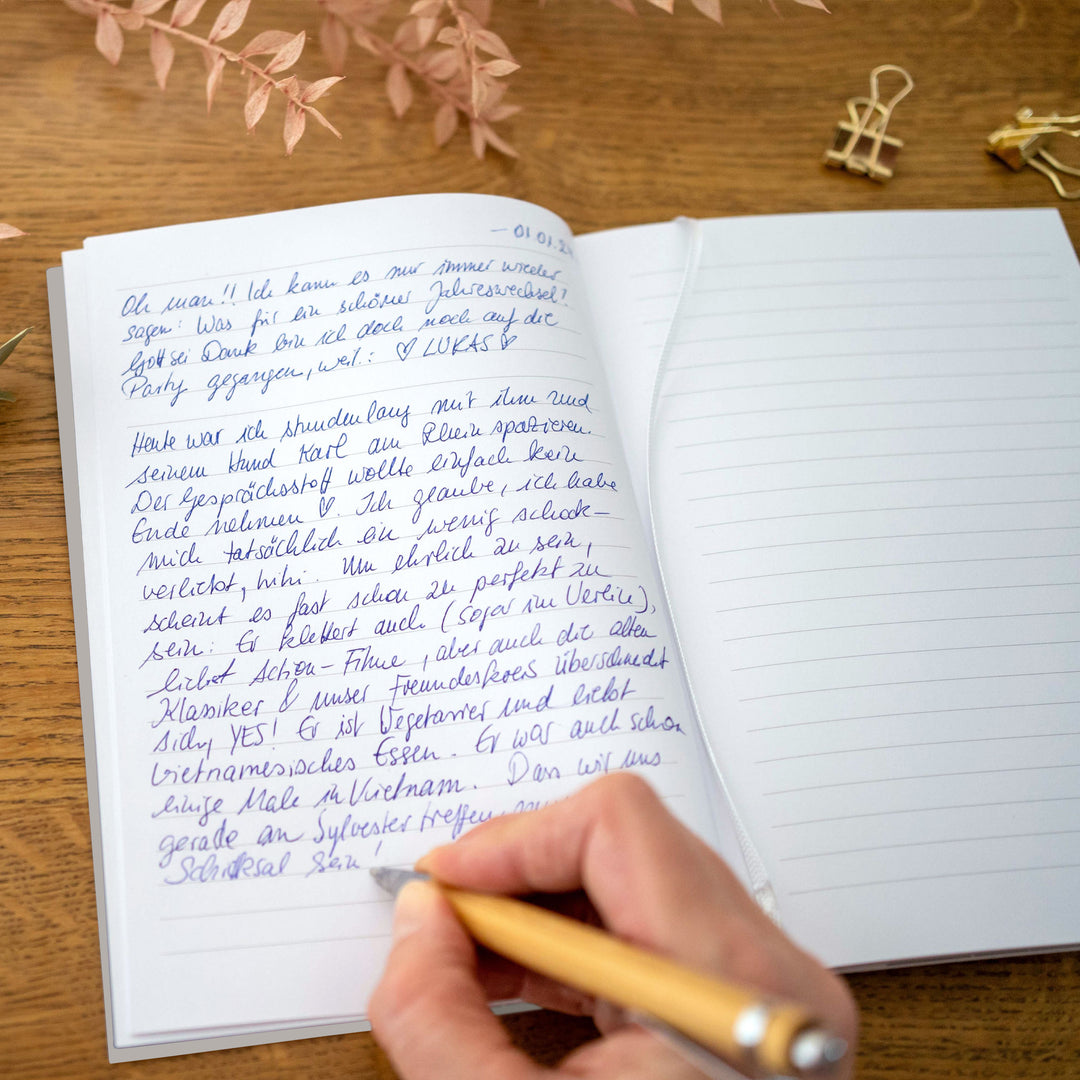 – 01.01.2
Oh man!! Ich kann es nur immer wieder
sagen: Was für ein schöner Jahreswechsel!
Gott sei Dank bin ich doch noch auf die
Party gegangen, weil: ♡ LUKAS ♡
Heute war ich stundenlang mit ihm und
seinem Hund Karl am Rhein spazieren.
Der Gesprächsstoff wollte einfach kein
Ende nehmen ♡. Ich glaube, ich habe
mich tatsächlich ein wenig schock-
verliebt, hihi. Um ehrlich zu sein,
scheint es fast schon zu perfekt zu
sein: Er klettert auch (sogar im Verein),
liebt Action-Filme, aber auch die alten
Klassiker & unser Freundeskreis überschneidet
sich, YES! Er ist Vegetarier und liebt
vietnamesisches Essen. Er war auch schon
einige Male in Vietnam. Dass wir uns
gerade an Sylvester treffen
Schicksal sein!